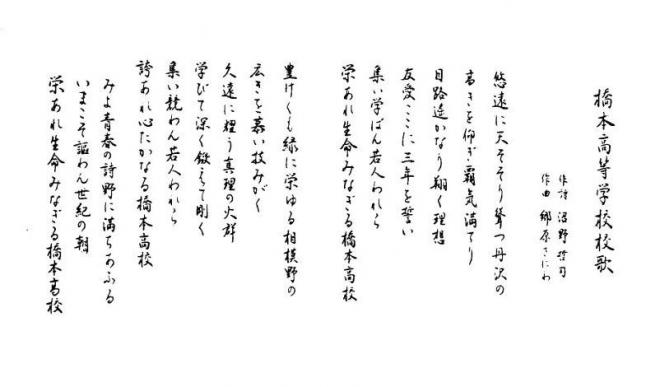 橋本高等学校校歌
作詩 沼野哲司
作曲 郷原さにわ
悠遠に天そそり聳つ丹沢の
高きを仰ぎ覇気満てり
目路遥かなり翔く理想
友愛ここに三年を誓い
集い学ばん若人われら
栄あれ生命みなぎる橋本高校
豊けくも緑に栄ゆる相模野の
広きを慕い技みがく
久遠に煙う真理の火群
学びて深く鍛えて剛く
集い競わん若人われら
誇あれ心たかなる橋本高校
みよ青春の詩野に満ちあふる
いまこそ謳わん世紀の朝
栄あれ生命みなぎる橋本高校